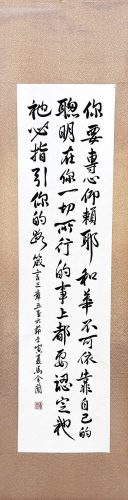 你要專心仰賴耶和華不可依靠自己的
聰明在你一切所行的事上都要認定祂
祂必指引你的路 箴言三章五至六節